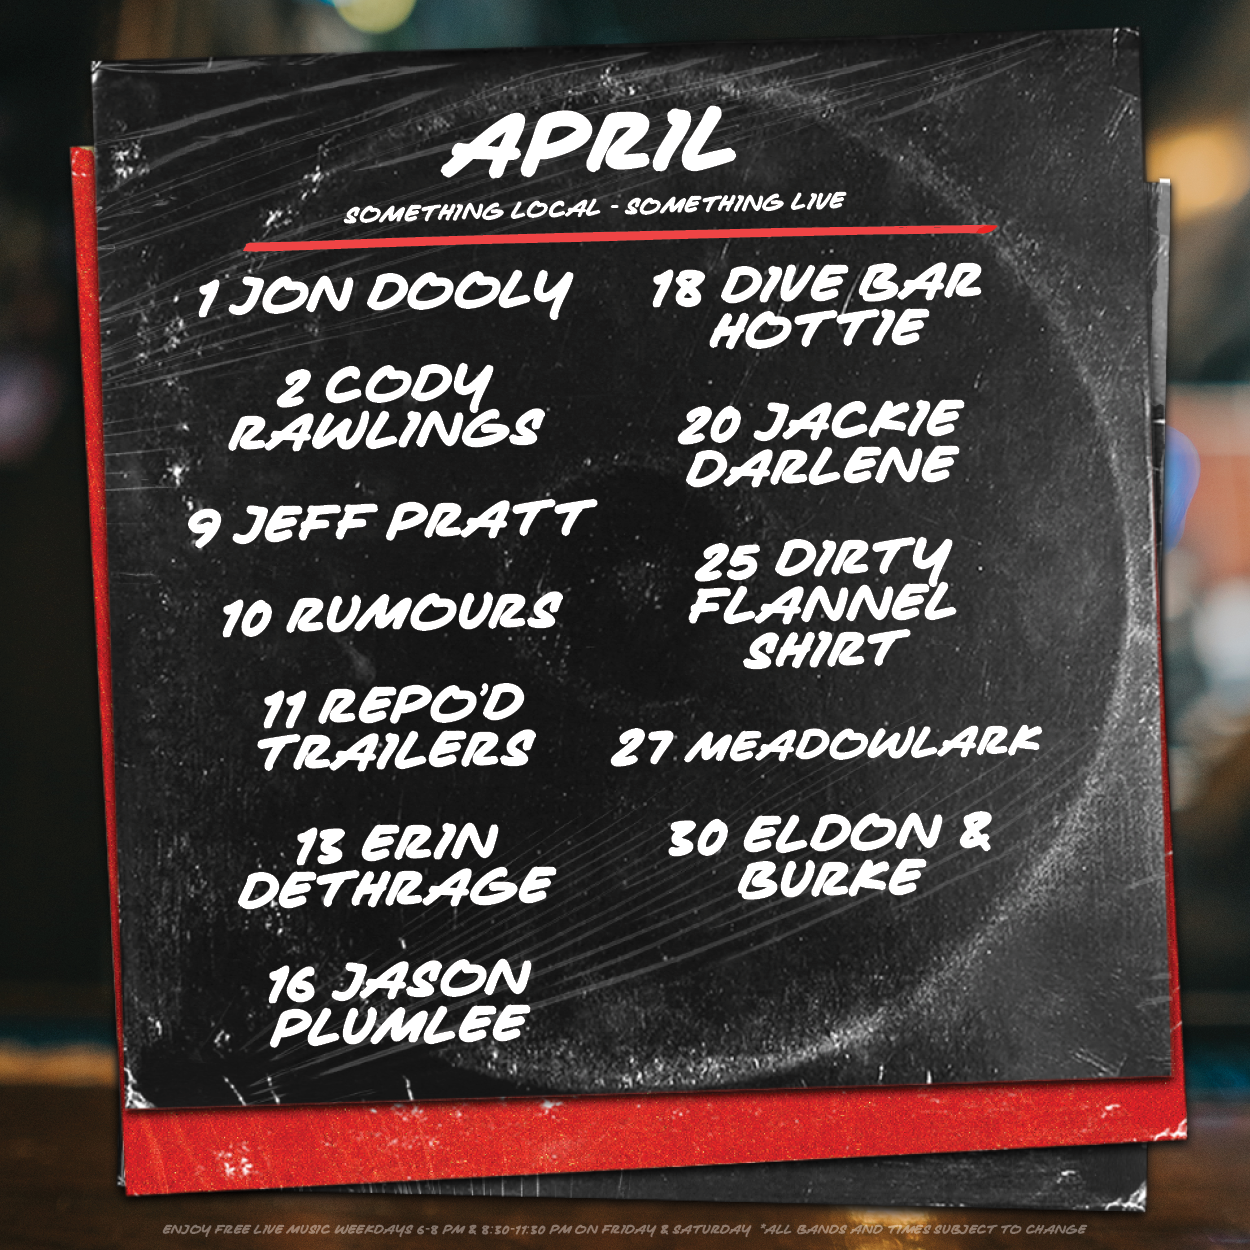 APRIL
SOMETHING LOCAL - SOMETHING LIVE
1 JON DOOLY
2 CODY
RAWLINGS
9 JEFF PRATT
10 RUMOURS
11 REPO'D
TRAILERS
13 ERIN
DETHRAGE
16 JASON
PLUMLEE
18 DIVE BAR
HOTTIE
20 JACKIE
DARLENE
25 DIRTY
FLANNEL
SHIRT
27 MEADOWLARK
30 ELDON &
BURKE
ENJOY FREE LIVE MUSIC WEEKDAYS 6-8 PM & 8:30-11:30 PM ON FRIDAY & SATURDAY *ALL BANDS AND TIMES SUBJECT TO CHANGE